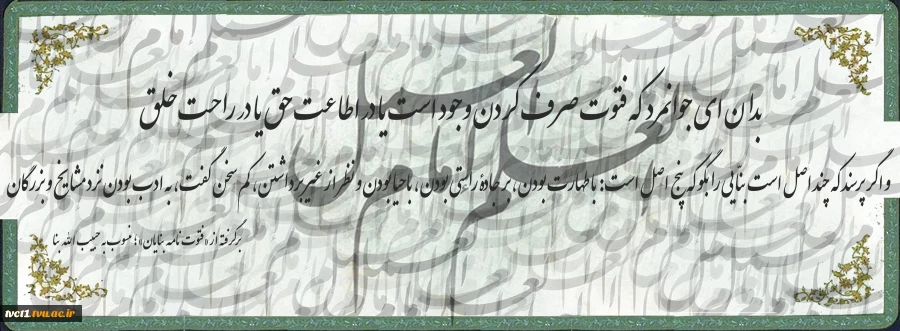 بدان ای جوانمرد که فتوت صرف کردن وجود است یا در اطاعت حق یا در راحت خلق
و اگر پرسند که چند اصل است بنایی را بگو که پنج اصل است: با طهارت بودن، بر جادهٔ راستی بودن، با حیا بودن و نظر از غیر برداشتن، کم سخن گفتن، به ادب بودن نزد مشایخ و بزرگان
برگرفته از «فتوت نامه بنایان»؛ منسوب به حبیب الله بنا
tvct1.tvu.ac.ir